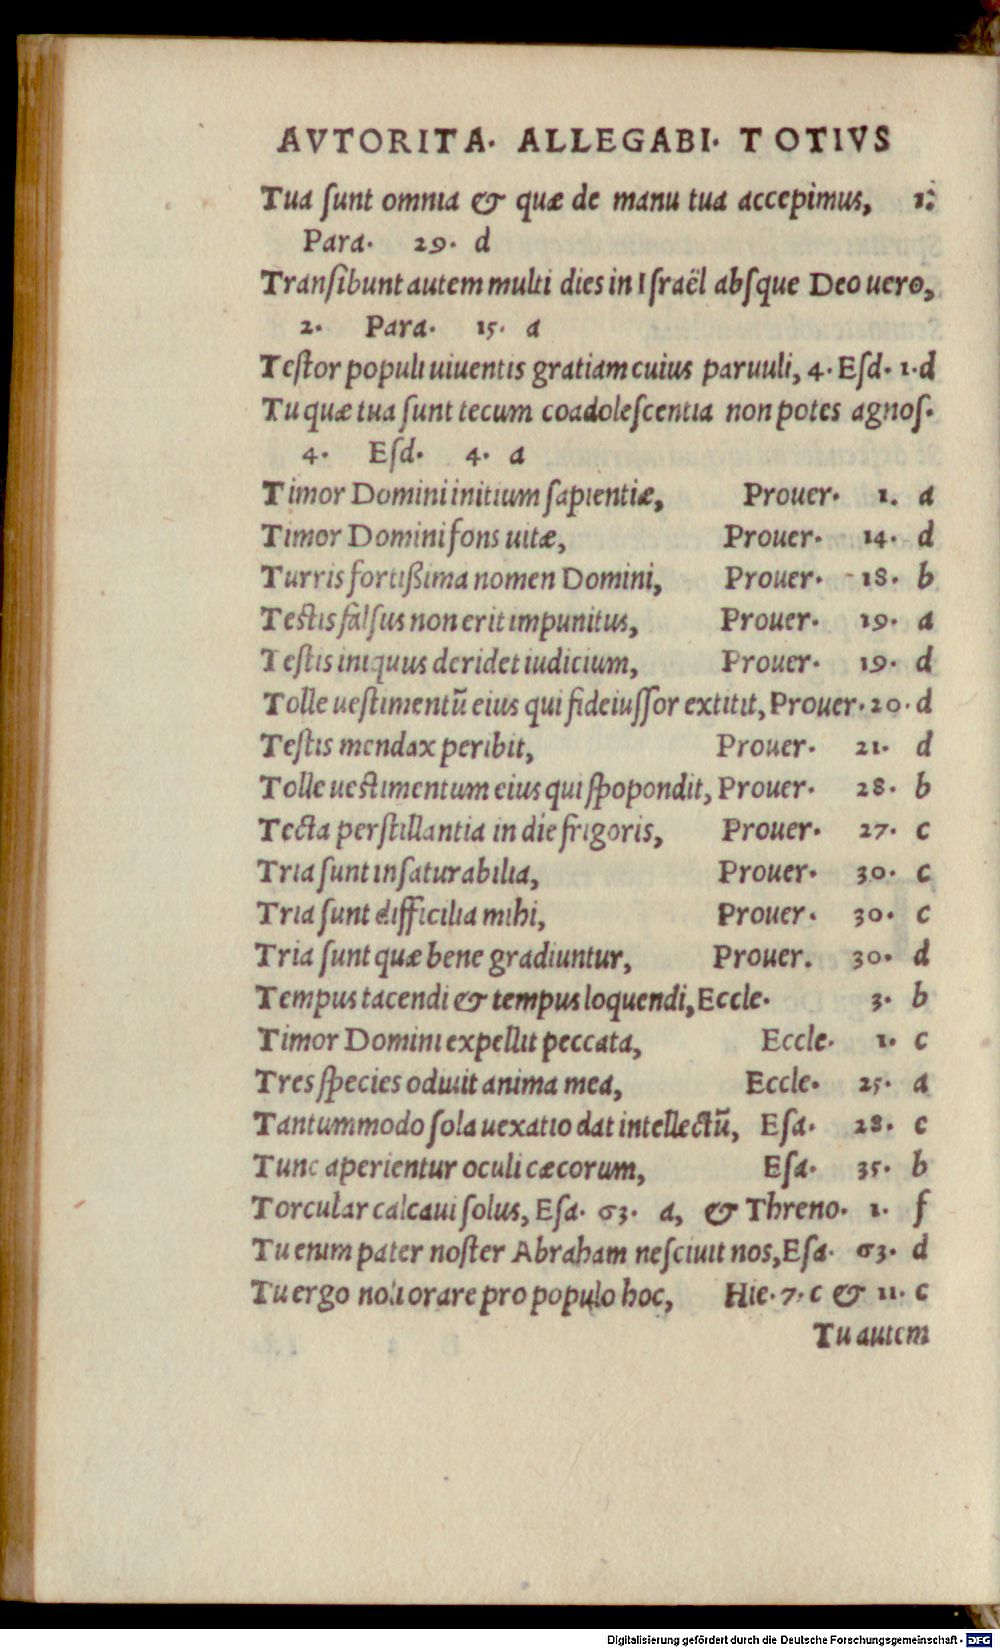 AVTORITA. ALLEGABI. TOTIVS
Tua ſunt omnia & quæ de manu tua accepimus, 1.
Para. 29. d
Tranſibunt autem multi dies in Iſraël abſque Deo uero,
2. Para. 15. a
Teſtor populi uiuentis gratiam cuius paruuli, 4. Eſd. 1. d
Tu quæ tua ſunt tecum coadoleſcentia non potes agnoſ.
4. Eſd. 4. a
Timor Domini initium ſapientiæ, Prouer. 1. a
Timor Domini fons uitæ, Prouer. 14. d
Turris fortißima nomen Domini, Prouer. 18. b
Teſtis falſus non erit impunitus, Prouer. 19. a
Teſtis iniquus deridet iudicium, Prouer. 19. d
Tolle ueſtimentũ eius qui fideiuſſor extitit, Prouer. 20. d
Teſtis mendax peribit, Prouer. 21. d
Tolle ueſtimentum eius qui ſpopondit, Prouer. 28. b
Tecta perſtillantia in die frigoris, Prouer. 27. c
Tria ſunt inſaturabilia, Prouer. 30. c
Tria ſunt difficilia mihi, Prouer. 30. c
Tria ſunt quæ bene gradiuntur, Prouer. 30. d
Tempus tacendi & tempus loquendi, Eccle. 3. b
Timor Domini expellit peccata, Eccle. 1. c
Tres ſpecies odiuit anima mea, Eccle. 25. a
Tantummodo ſola uexatio dat intellectũ, Eſa. 28. c
Tunc aperientur oculi cæcorum, Eſa. 35. b
Torcular calcaui ſolus, Eſa. 63. a, & Threno. 1. f
Tu enim pater noſter Abraham neſciuit nos, Eſa. 63. d
Tu ergo noli orare pro populo hoc, Hie. 7. c & 11. c
Tu autem
Digitalisierung gefördert durch die Deutsche Forschungsgemeinschaft - DFG